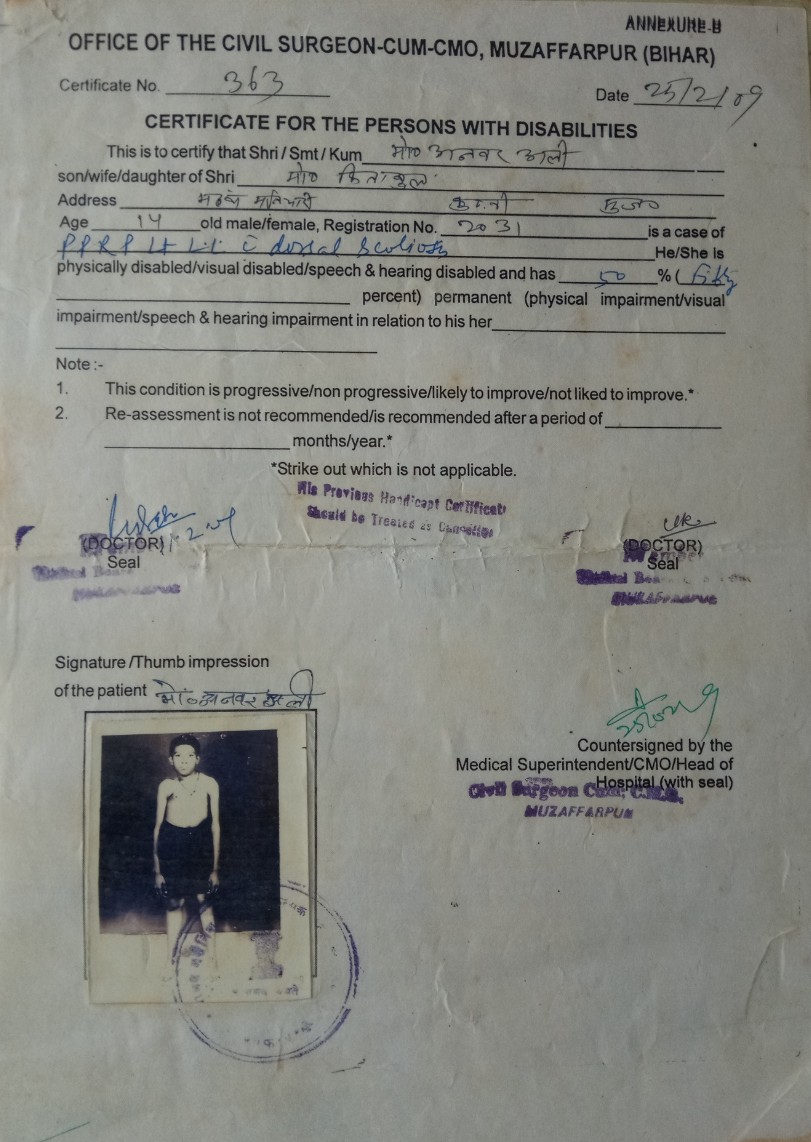 ANNEXURE-B
OFFICE OF THE CIVIL SURGEON-CUM-CMO, MUZAFFARPUR (BIHAR)
Certificate No. 363
Date 25/2/09
CERTIFICATE FOR THE PERSONS WITH DISABILITIES
This is to certify that Shri / Smt / Kum मो० अनवर अली
son/wife/daughter of Shri मो०
Address
Age 14 old male/female, Registration No. 2031 is a case of
PPRP Lt L.L. c dorsal Scoliosis He/She is
physically disabled/visual disabled/speech & hearing disabled and has 50 % ( Fifty
percent) permanent (physical impairment/visual
impairment/speech & hearing impairment in relation to his her
Note :-
1. This condition is progressive/non progressive/likely to improve/not liked to improve.*
2. Re-assessment is not recommended/is recommended after a period of
months/year.*
*Strike out which is not applicable.
His Previous Handicapt Certificate
Should be Treated as Cancelled
(DOCTOR)
Seal
(DOCTOR)
Seal
Signature /Thumb impression
of the patient मो० अनवर अली
Countersigned by the
Medical Superintendent/CMO/Head of
Hospital (with seal)
Civil Surgeon Cum, C.M.O.
MUZAFFARPUR